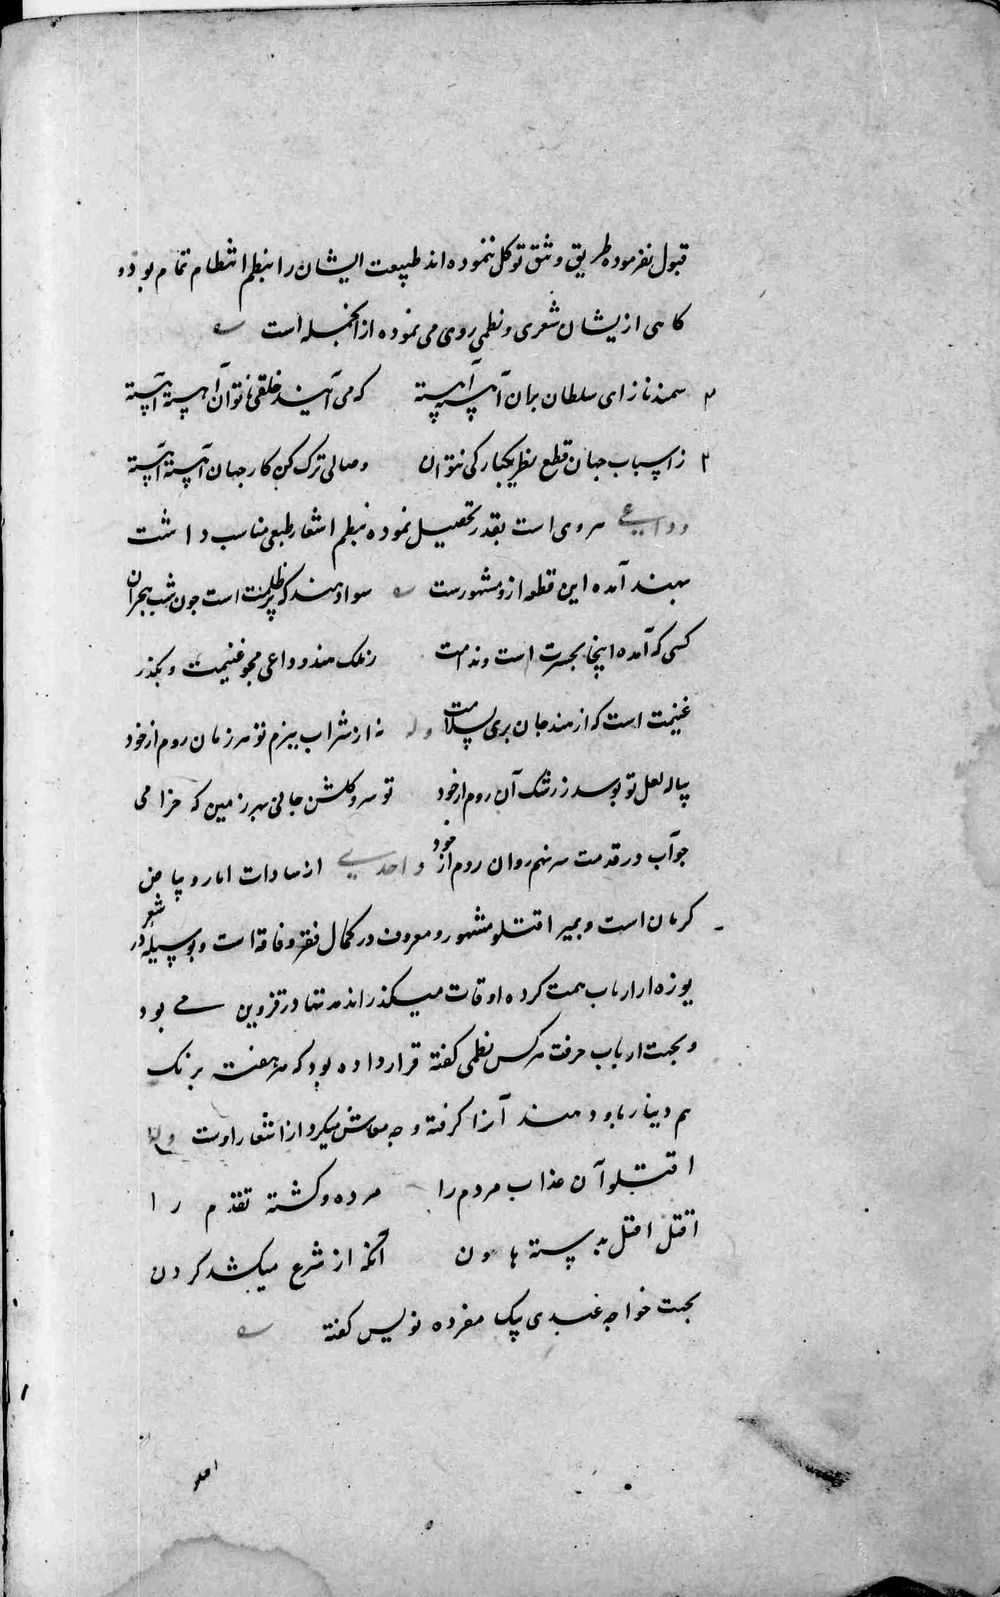 قبول نفرموده طریق وشق توکل ننموده اند طبیعت ایشان را بنظم انتظام تمام بوده و
کاهی ازیشان شعری و نظمی روی می نموده از انجمله است
سمند ناز ای سلطان بران آهسته آهسته که می آیند خلقی ناتوان آهسته آهسته
ز اسباب جهان قطع نظر یکبارکی نتوان وصالی ترک کن کار جهان آهسته آهسته
وداعی هروی است بقدر تحصیل نموده بنظم اشعار طبعی مناسب داشت
بهند آمده این قطعه ازو مشهورست سواد هند که پر ظلمت است چون شب هجران
کسی که آمده اینجا بحسرت است و ندامت ز ملک هند وداعی مجو غنیمت و بگذر
غنیمت است که از هند جان بری بسلامت وله نه از شراب ببزم تو هر زمان روم از خود
پیاله لعل تو بوسد ز رشک آن روم از خود تو سرو گلشن جانی بهر زمین که خرامی
چو آب در قدمت سر نهم روان روم از خود واحدی از سادات
کرمان است و بمیر اقتلو مشهور و معروف در کمال فقر و فاقه است و بوسیله شعر در
یوزه از ارباب همت کرده اوقات میگذراند مدتها در قزوین می بود
و بجهت ارباب حرفت هر کس نظمی گفته قرار داده بود که هر هفته هر یک
دینار باو دهند آنرا گرفته وجه معاش میکرد از اشعار اوست
اقتلو آن عذاب مردم را مرده و کشته تقدم را
اقتل اقتل آنکه از شرع میکشد گردن
بجهت خواجه عبدی بیک مفرده نویس گفته